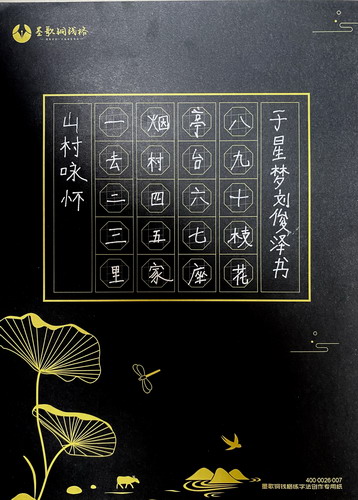 墨歌铜钱格
山村咏怀
一去二三里
烟村四五家
亭台六七座
八九十枝花
于星梦刘俊泽书
400 0026 007
墨歌铜钱格练字法创作专用纸